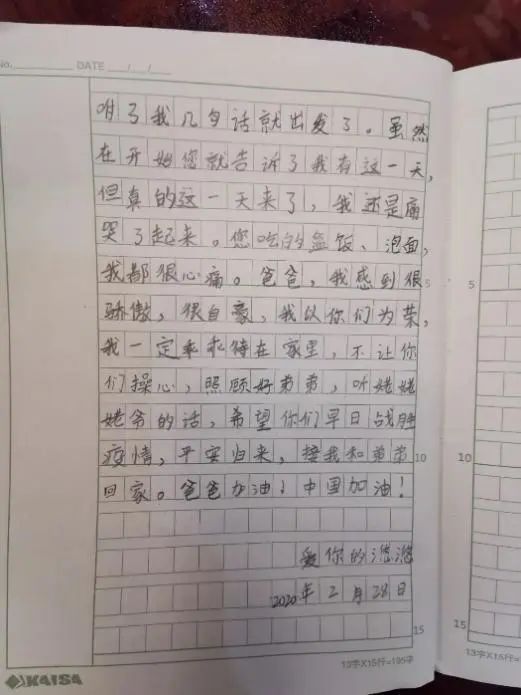 No. DATE / /
咐了我几句话就出发了。虽然
在开始您就告诉了我有这一天,
但真的这一天来了,我还是痛
哭了起来。您吃的盒饭、泡面,
我都很心痛。爸爸,我感到很
骄傲,很自豪,我以你们为荣,
我一定乖乖待在家里,不让你
们操心,照顾好弟弟,听姥姥
姥爷的话,希望你们早日战胜
疫情,平安归来,接我和弟弟
回家。爸爸加油!中国加油!
爱你的
2020年2月28日
5
10
15
5
10
15
KAISA
13字X15行=195字
13字X15行